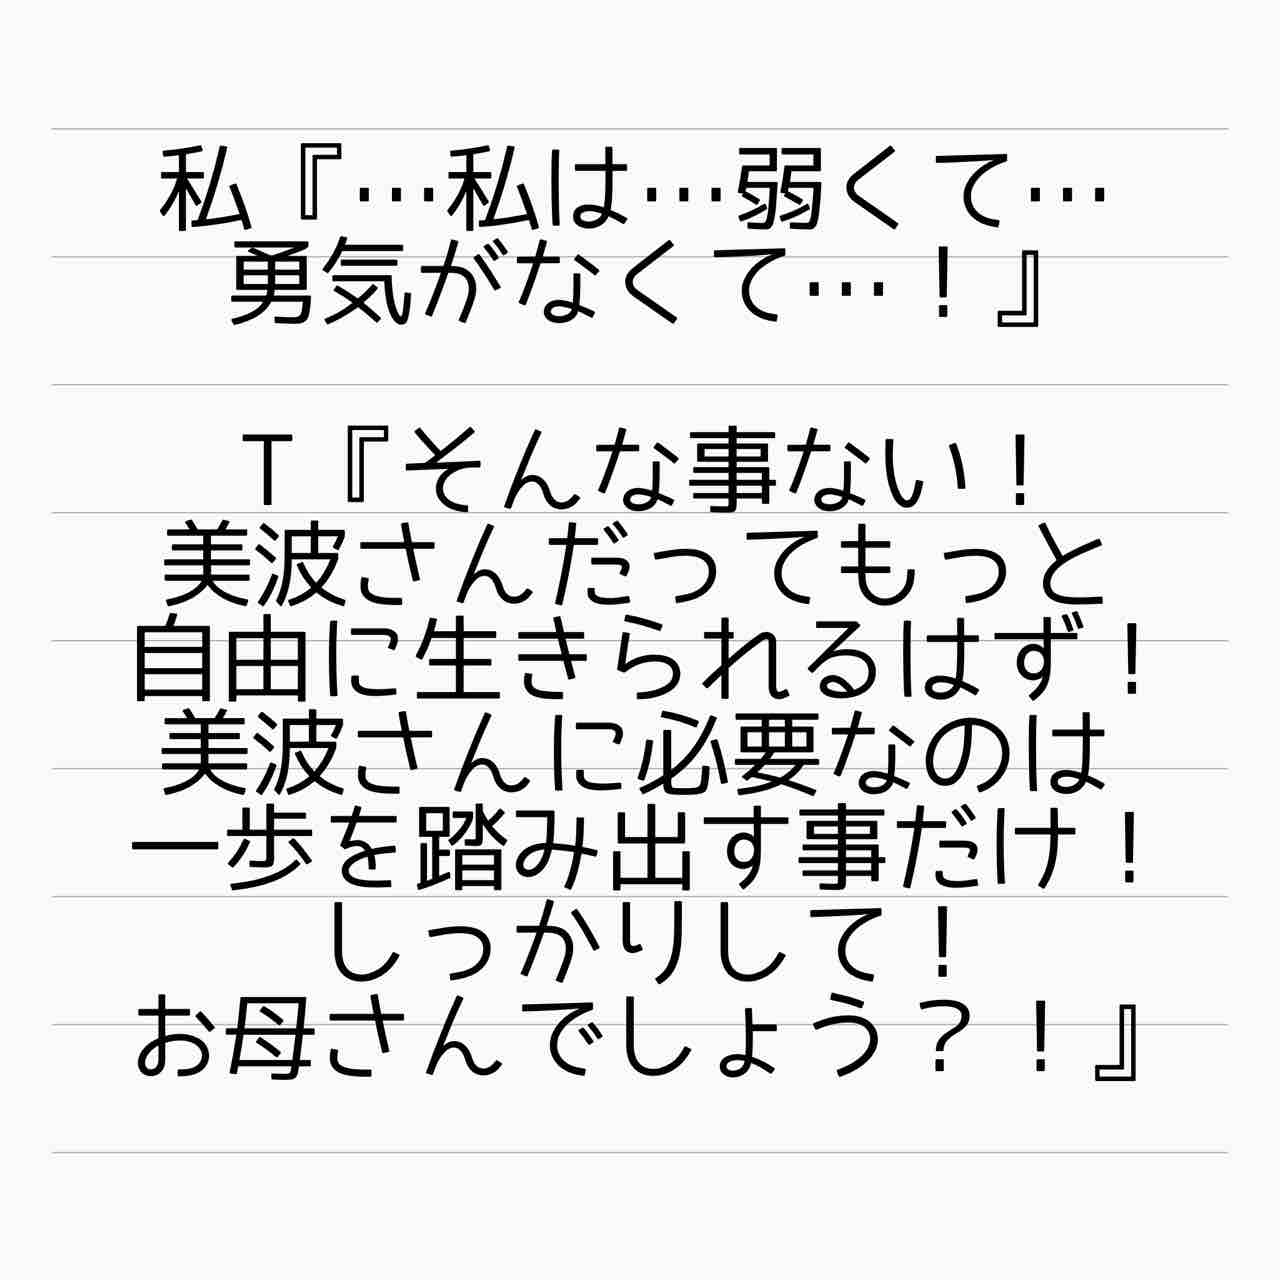 私『…私は…弱くて…
勇気がなくて…！』
T『そんな事ない！
美波さんだってもっと
自由に生きられるはず！
美波さんに必要なのは
一歩を踏み出す事だけ！
しっかりして！
お母さんでしょう？！』